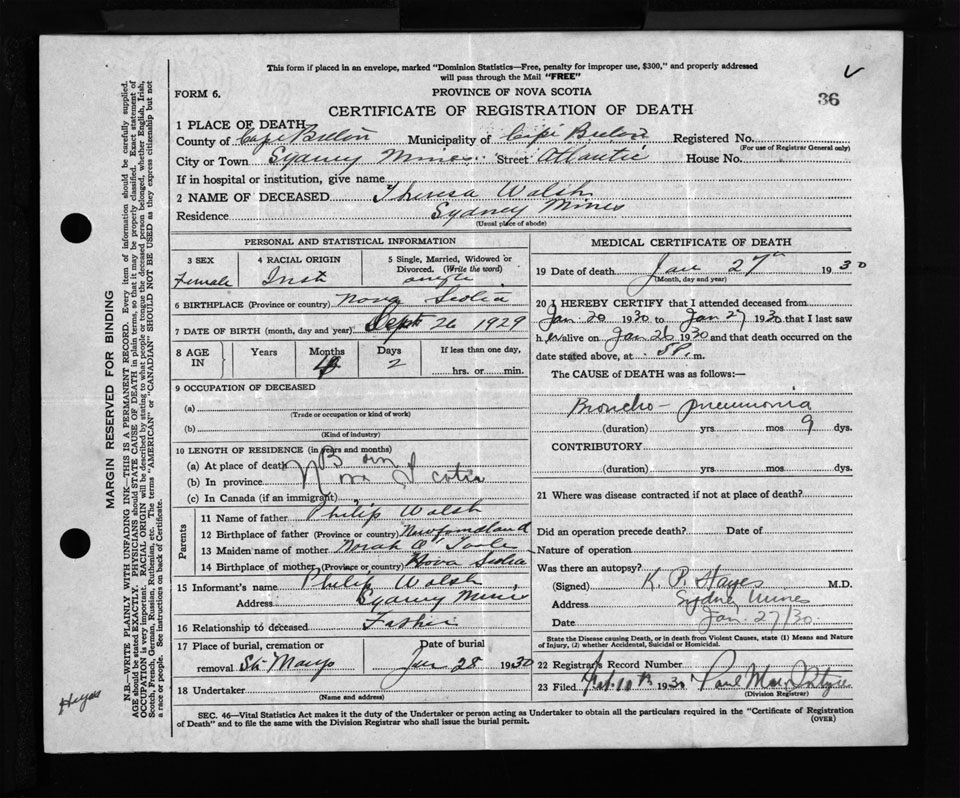 This form if placed in an envelope, marked "Dominion Statistics—Free, penalty for improper use, $300," and properly addressed
will pass through the Mail "FREE"
FORM 6.
PROVINCE OF NOVA SCOTIA
36
CERTIFICATE OF REGISTRATION OF DEATH
1 PLACE OF DEATH
County of Cape Breton Municipality of Cape Breton Registered No.
(For use of Registrar General only)
City or Town Sydney Mines Street Atlantic House No.
If in hospital or institution, give name
2 NAME OF DECEASED Theresa Walsh
Residence Sydney Mines
(Usual place of abode)
PERSONAL AND STATISTICAL INFORMATION
3 SEX Female
4 RACIAL ORIGIN Irish
5 Single, Married, Widowed or Divorced. (Write the word) single
6 BIRTHPLACE (Province or country) Nova Scotia
7 DATE OF BIRTH (month, day and year) Sept 26 1929
8 AGE IN Years Months 4 Days 2 If less than one day, hrs. or min.
9 OCCUPATION OF DECEASED
(a)
(Trade or occupation or kind of work)
(b)
(Kind of industry)
10 LENGTH OF RESIDENCE (in years and months)
(a) At place of death Born
(b) In province Nova Scotia
(c) In Canada (if an immigrant)
Parents
11 Name of father Philip Walsh
12 Birthplace of father (Province or country) Newfoundland
13 Maiden name of mother Norah O'Toole
14 Birthplace of mother (Province or country) Nova Scotia
15 Informant's name Philip Walsh
Address Sydney Mines
16 Relationship to deceased Father
17 Place of burial, cremation or removal St. Marys Date of burial Jan 28 1930
18 Undertaker
(Name and address)
MEDICAL CERTIFICATE OF DEATH
19 Date of death Jan 27th 1930
(Month, day and year)
20 I HEREBY CERTIFY that I attended deceased from
Jan. 20 1930 to Jan 27 1930 that I last saw
h er alive on Jan 26 1930 and that death occurred on the
date stated above, at 5 P. m.
The CAUSE of DEATH was as follows:—
Broncho-pneumonia
(duration) yrs mos 9 dys.
CONTRIBUTORY
(duration) yrs mos dys.
21 Where was disease contracted if not at place of death?
Did an operation precede death? Date of
Nature of operation
Was there an autopsy?
(Signed) K. P. Hayes M.D.
Address Sydney Mines
Date Jan. 27/30.
State the Disease causing Death, or in death from Violent Causes, state (1) Means and Nature
of Injury, (2) whether Accidental, Suicidal or Homicidal.
22 Registrar's Record Number
23 Filed Feb. 10th 1930 Paul MacIntyre
(Division Registrar)
SEC. 46—Vital Statistics Act makes it the duty of the Undertaker or person acting as Undertaker to obtain all the particulars required in the "Certificate of Registration
of Death" and to file the same with the Division Registrar who shall issue the burial permit.
(OVER)
MARGIN RESERVED FOR BINDING
N.B.—WRITE PLAINLY WITH UNFADING INK—THIS IS A PERMANENT RECORD. Every item of information should be carefully supplied.
AGE should be stated EXACTLY. PHYSICIANS should STATE CAUSE OF DEATH in plain terms, so that it may be properly classified. Exact statement of
OCCUPATION is very important. RACIAL ORIGIN will be described by stating to what people or race the deceased person belonged, whether English, Irish,
Scotch, French, German, Russian, Ruthenian, etc. The terms "AMERICAN" or "CANADIAN" SHOULD NOT BE USED as they express citizenship but not
a race or people. See instructions on back of Certificate.
Hayes